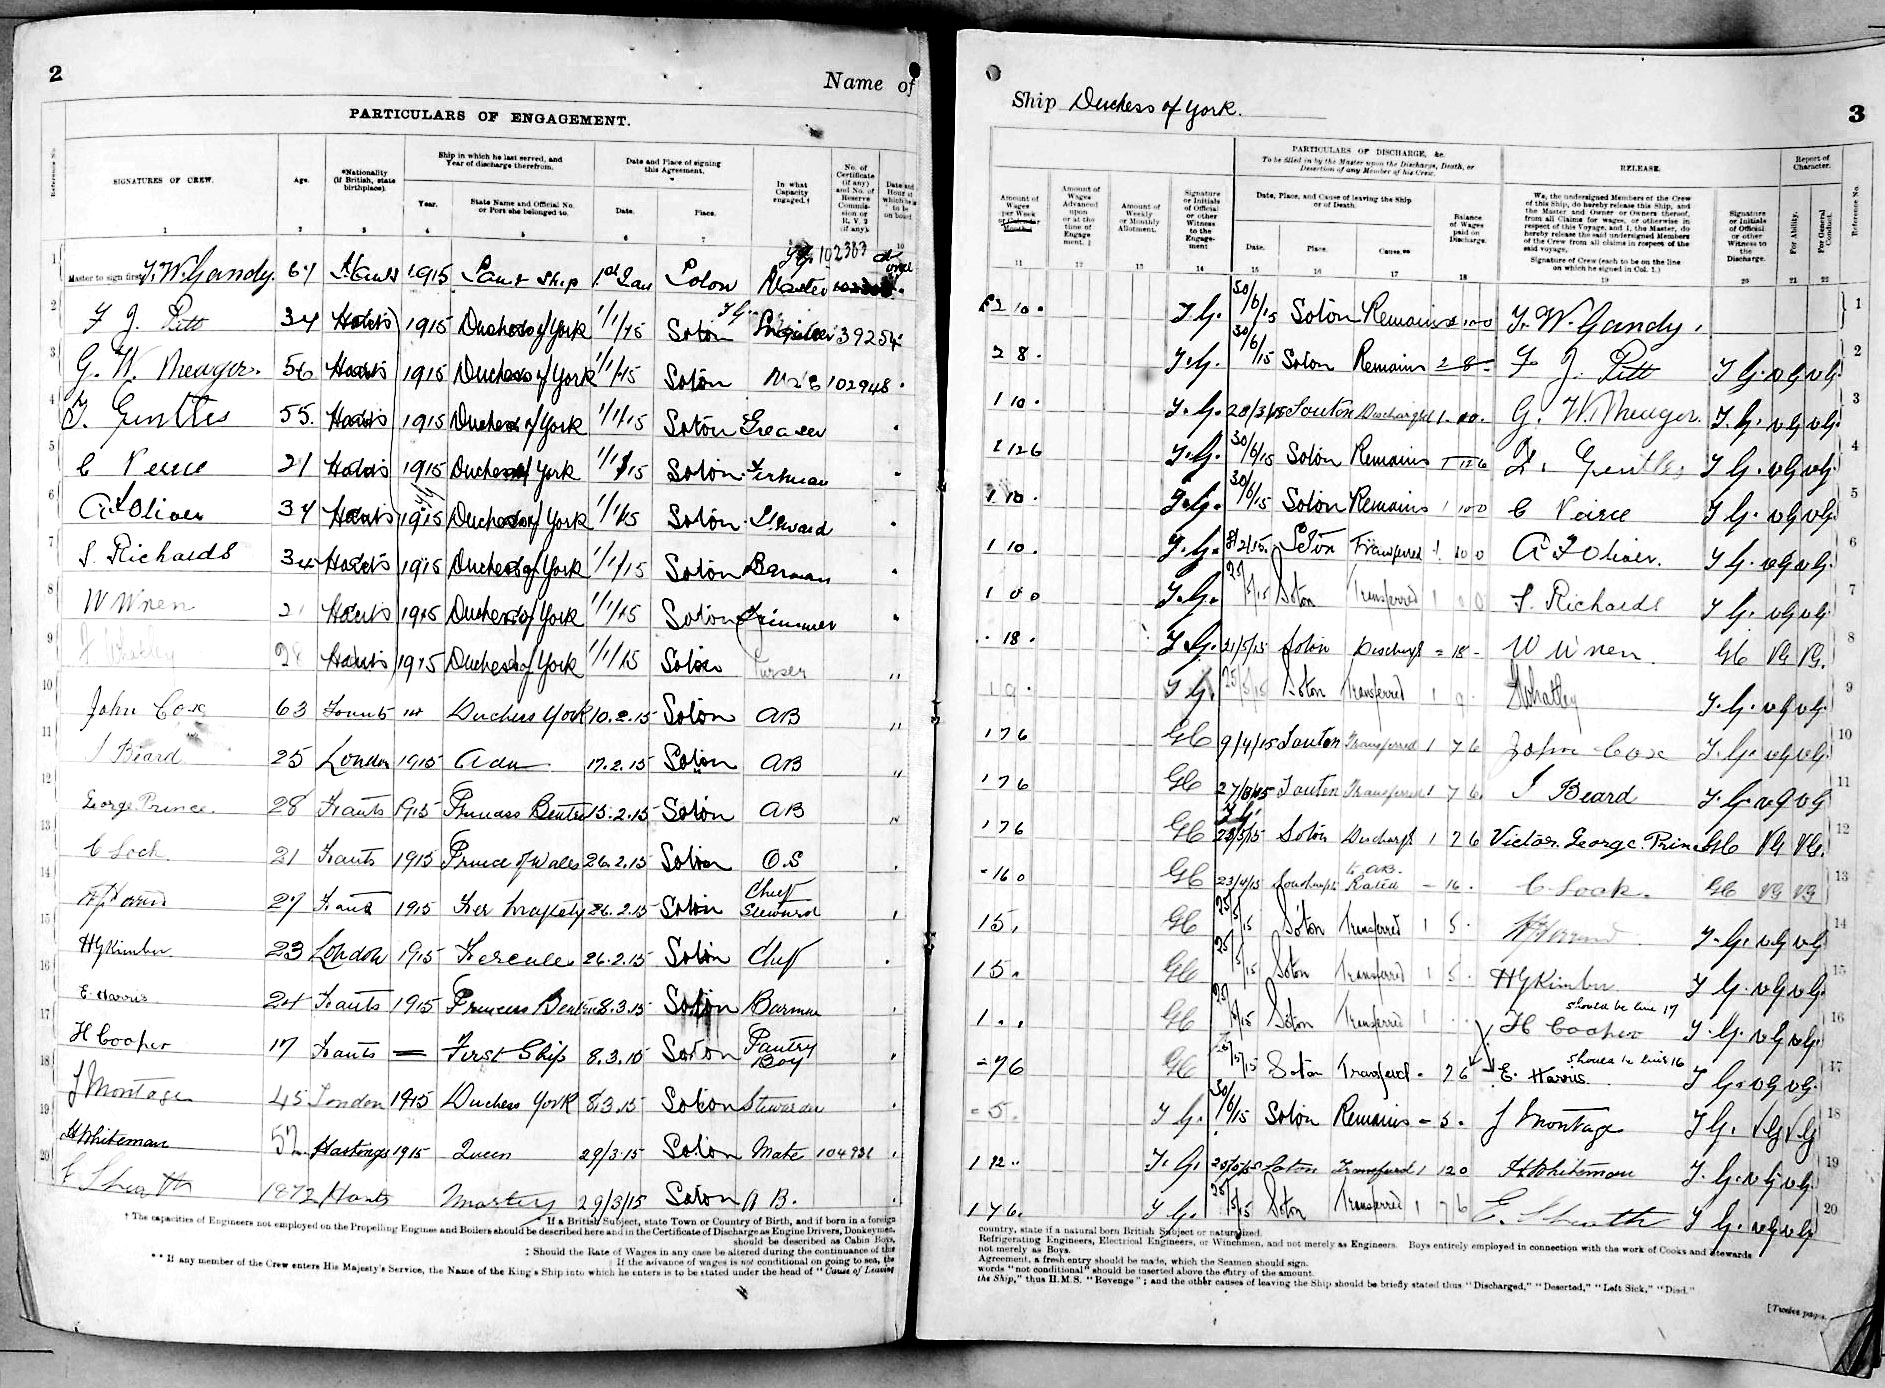 2
Name of
PARTICULARS OF ENGAGEMENT.
Reference No.
SIGNATURES OF CREW.
Age.
*Nationality (if British, state birthplace).
Ship in which he last served, and Year of discharge therefrom.
Year.
State Name and Official No. or Port she belonged to.
Date and Place of signing this Agreement.
Date.
Place.
In what Capacity engaged.†
No. of Certificate (if any) and No. of Reserve Commission or R.V.2 (if any).
Date and Hour at which he is to be on board
1 2 3 4 5 6 7 10
1 Master to sign first J. W. Gandy. 67 Hants 1915 Same Ship 1st Jan Soton Master 102307
2 F J. Pitt 34 Hants 1915 Duchess of York 1/1/15 Soton Engineer 39254
3 G. W. Meager. 56 Hants 1915 Duchess of York 1/1/15 Soton Mate 102948
4 F. Gentles 55. Hants 1915 Duchess of York 1/1/15 Soton Greaser
5 C Peirce 21 Hants 1915 Duchess of York 1/1/15 Soton Fireman
6 A F Oliver 34 Hants 1915 Duchess of York 1/1/15 Soton Steward
7 S. Richards 34 Hants 1915 Duchess of York 1/1/15 Soton Barman
8 W Wren 21 Hants 1915 Duchess of York 1/1/15 Soton Trimmer
9 J Whatley 28 Hants 1915 Duchess of York 1/1/15 Soton Purser
10 John Cox 63 Hants Duchess York 10.2.15 Soton AB
11 J Beard 25 London 1915 Ada 17.2.15 Soton AB
12 George Prince. 28 Hants 1915 Princess Beatrice 15.2.15 Soton AB
13 C Lock 21 Hants 1915 Prince of Wales 26.2.15 Soton O.S
14 27 Hants 1915 Her Majesty 26.2.15 Soton Chief Steward
15 H G Kimber 23 London 1915 Hercules 26.2.15 Soton Chef
16 E. Harris 24 Hants 1915 Princess Beatrice 8.3.15 Soton Barman
17 H Cooper 17 Hants — First Ship 8.3.15 Soton Pantry Boy
18 J Montage 45 London 1915 Duchess York 8.3.15 Soton Stewardess
19 H Whiteman 52 Hastings 1915 Queen 29/3/15 Soton Mate
20 E Sheath 1872 Hants 29/3/15 Soton A B.
† The capacities of Engineers not employed on the Propelling Engines and Boilers should be described here and in the Certificate of Discharge as Engine Drivers, Donkeymen,
* If a British Subject, state Town or Country of Birth, and if born in a foreign
should be described as Cabin Boys,
‡ Should the Rate of Wages in any case be altered during the continuance of this
If the advance of wages is not conditional on going to sea, the
** If any member of the Crew enters His Majesty's Service, the Name of the King's Ship into which he enters is to be stated under the head of "Cause of Leaving
Ship Duchess of York.
3
PARTICULARS OF DISCHARGE, &c.
To be filled in by the Master upon the Discharge, Death, or Desertion of any Member of his Crew.
RELEASE.
Report of Character.
Amount of Wages per Week or Calendar Month.‡
Amount of Wages Advanced upon or at the time of Engagement.
Amount of Weekly or Monthly Allotment.
Signature or Initials of Official or other Witness to the Engagement
Date, Place, and Cause of leaving the Ship or of Death.
Date.
Place.
Cause.**
Balance of Wages paid on Discharge.
We, the undersigned Members of the Crew of this Ship, do hereby release this Ship, and the Master and Owner or Owners thereof, from all Claims for wages, or otherwise in respect of this Voyage, and I, the Master, do hereby release the said undersigned Members of the Crew from all claims in respect of the said voyage.
Signature of Crew (each to be on the line on which he signed in Col. 1.)
Signature or Initials of Official or other Witness to the Discharge.
For Ability.
For General Conduct.
Reference No.
11 12 13 14 15 16 17 18 19 20 21 22
£2 10. J. G. 30/6/15 Soton Remains J. W. Gandy. 1
2 8. J. G. 30/6/15 Soton Remains 2 8 F J. Pitt J G. v G v G. 2
1 10. J. G. 28/3/15 Souton Discharged G. W. Meager. J. G. v G v G. 3
1 12 6 J. G. 30/6/15 Soton Remains 1 12 6 F. Gentles J G. v G v G. 4
1 10. J. G. 30/6/15 Soton Remains C Peirce J G. v G v G. 5
1 10. J. G. 8/2/15. Soton Transferred A F Oliver. J G. v G v G. 6
1 0 0 J. G. 25/5/15 Soton Transferred 1 0 0 S. Richards J G. v G v G. 7
18. J. G. 21/5/15 Soton Discharged = 18 - W Wren. GC VG VG. 8
1 9. J G. 25/5/15 Soton Transferred 1 9. J Whatley J. G. v G v G. 9
1 7 6 GC 9/4/15 Souton Transferred 1 7 6 John Cox J. G. v G v G. 10
1 7 6 GC 27/3/15 Souton Transferred 1 7 6. J Beard J. G. v G v G 11
1 7 6 GC Soton Discharged 1 7 6 Victor. George. Prince GC VG VG. 12
- 16 0 GC 23/4/15 Rated to AB. - 16. C. Lock. GC VG VG 13
1 5. GC 25/5/15 Soton Transferred 1 5. J. G. v G v G 14
1 5. GC 25/5/15 Soton Transferred 1 5. H G Kimber J G. v G v G. 15
should be line 17
1 . . GC 25/5/15 Soton Transferred 1 . . H Cooper J. G. v G v G. 16
should be line 16
= 7 6 GC 25/5/15 Soton Transferred - 7 6 E. Harris J G. v G v G. 17
- 5. J G. 30/6/15 Soton Remains - 5. J Montage J G. VG VG 18
1 12 .. J. G. 25/5/15 Soton Transferred 1 12 0 H Whiteman J. G. v G v G. 19
1 7 6. J G. 25/5/15 Soton Transferred 1 7 6 E. Sheath J G. v G v G 20
country, state if a natural born British Subject or naturalized.
Refrigerating Engineers, Electrical Engineers, or Winchmen, and not merely as Engineers. Boys entirely employed in connection with the work of Cooks and Stewards
not merely as Boys.
Agreement, a fresh entry should be made, which the Seamen should sign.
words "not conditional" should be inserted above the entry of the amount.
the Ship," thus H.M.S. "Revenge"; and the other causes of leaving the Ship should be briefly stated thus "Discharged," "Deserted," "Left Sick," "Died."
[Twelve pages.